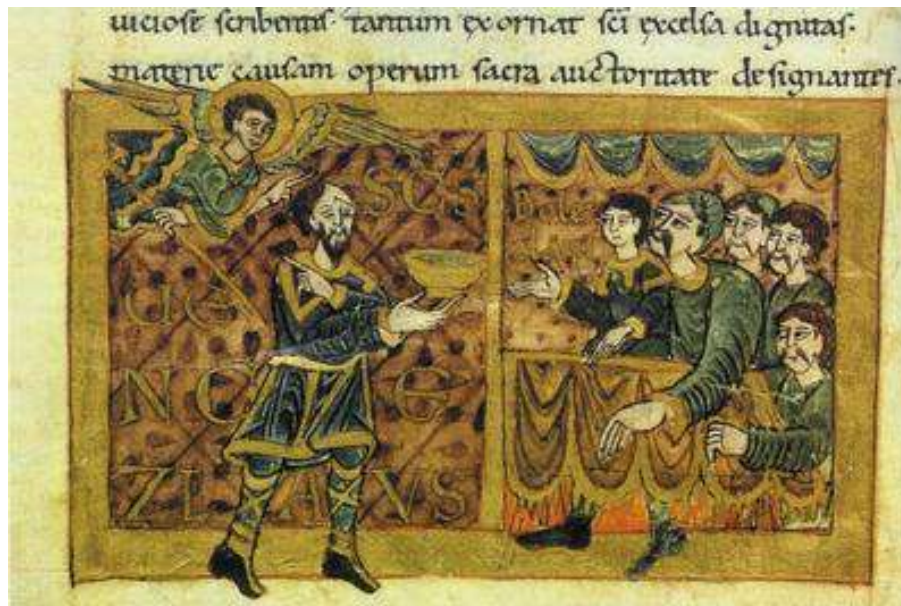 uiciose scribentis· tantum exornat sci excelsa dignitas·
materie causam operum sacra auctoritate designantes·
SCS
UE
NCEZE
ZLAVS